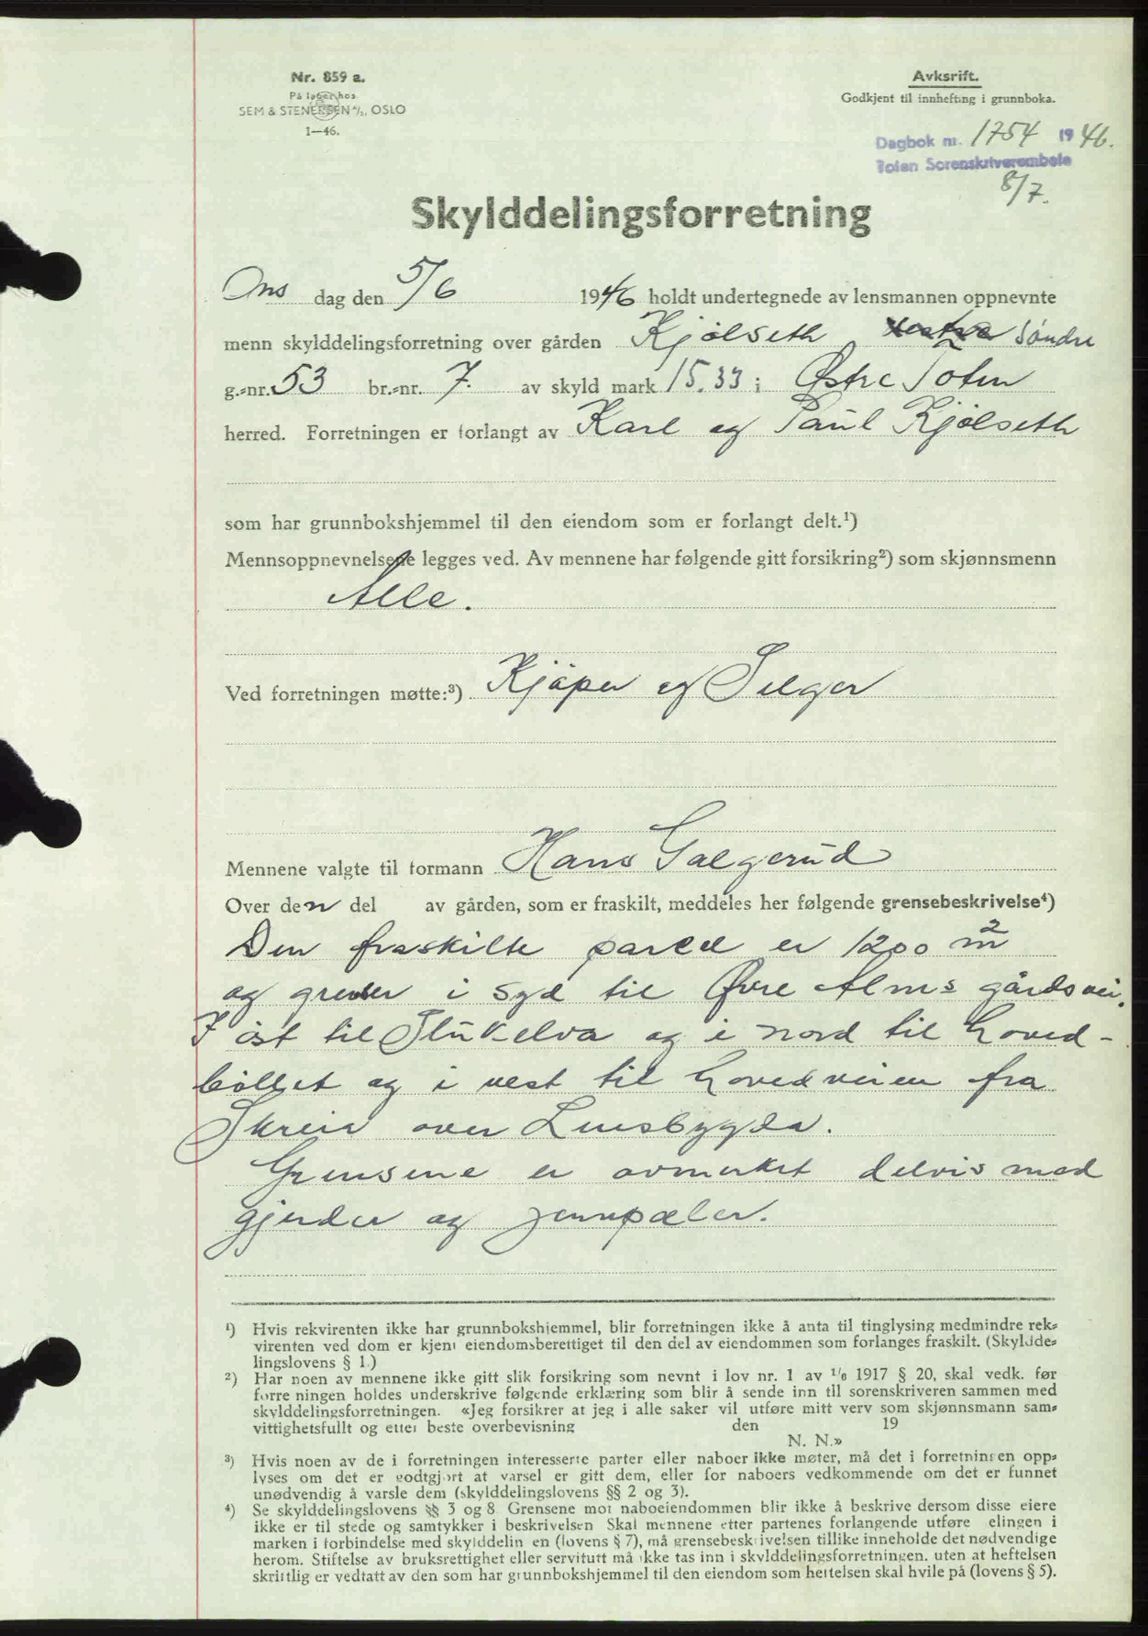 Nr. 859 a.
På lager hos
SEM & STENERSEN A/S, OSLO
1—46.
Avksrift.
Godkjent til innhefting i grunnboka.
Dagbok nr. 1754 1946.
Toten Sorenskriverembete
8/7.
Skylddelingsforretning
Ons dag den 5/6 1946 holdt undertegnede av lensmannen oppnevnte
menn skylddelingsforretning over gården Kjølseth Søndre
g.-nr. 53 br.-nr. 7. av skyld mark 15.33 i Østre Toten
herred. Forretningen er forlangt av Karl og Paul Kjølseth
som har grunnbokshjemmel til den eiendom som er forlangt delt.¹)
Mennsoppnevnelsene legges ved. Av mennene har følgende gitt forsikring²) som skjønnsmenn
Alle.
Ved forretningen møtte:³) Kjøper og Selger
Mennene valgte til formann Hans Galgerud
Over den del av gården, som er fraskilt, meddeles her følgende grensebeskrivelse⁴)
Den fraskilte parcel er 1200 m²
og grenser i syd til Øvre Alms gårdsvei.
I øst til Slukelva og i nord til hoved-
bøllet og i vest til hovedveien fra
Skreia over Lensbygda.
Grensene er avmerket delvis med
gjerder og jernpæler.
¹) Hvis rekvirenten ikke har grunnbokshjemmel, blir forretningen ikke å anta til tinglysing medmindre rek-
virenten ved dom er kjent eiendomsberettiget til den del av eiendommen som forlanges fraskilt. (Skyldde-
lingslovens § 1.)
²) Har noen av mennene ikke gitt slik forsikring som nevnt i lov nr. 1 av 1/6 1917 § 20, skal vedk. før
forretningen holdes underskrive følgende erklæring som blir å sende inn til sorenskriveren sammen med
skylddelingsforretningen. «Jeg forsikrer at jeg i alle saker vil utføre mitt verv som skjønnsmann sam-
vittighetsfullt og etter beste overbevisning den 19
N. N.»
³) Hvis noen av de i forretningen interesserte parter eller naboer ikke møter, må det i forretningen opp-
lyses om det er godtgjort at varsel er gitt dem, eller for naboers vedkommende om det er funnet
unødvendig å varsle dem (skylddelingslovens §§ 2 og 3).
⁴) Se skylddelingslovens §§ 3 og 8. Grensene mot naboeiendommen blir ikke å beskrive dersom disse eiere
ikke er til stede og samtykker i beskrivelsen Skal mennene etter partenes forlangende utføre delingen i
marken i forbindelse med skylddelingen (lovens § 7), må grensebeskrivelsen tillike inneholde det nødvendige
herom. Stiftelse av bruksrettighet eller servitutt må ikke tas inn i skylddelingsforretningen, uten at heftelsen
skriftlig er vedtatt av den som har grunnbokshjemmel til den eiendom som heftelsen skal hvile på (lovens § 5).